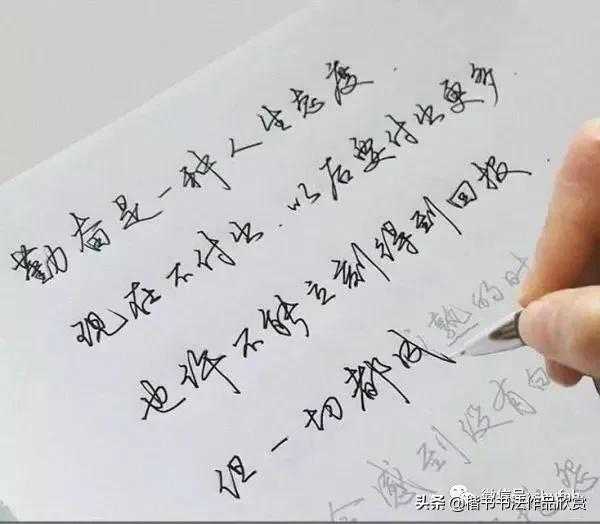 勤奋是一种人生态度.
现在不付出.以后要付出更多
也许不能立刻得到回报.
但一切都成
熟的时
会感到没有白
头条@楷书书法作品欣赏